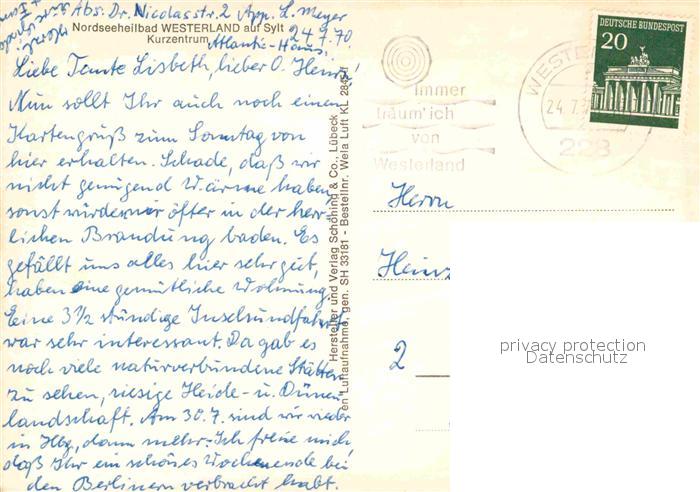 Abs: Dr. Nicolasstr. 2 App. L. Meyer
Nordseeheilbad WESTERLAND auf Sylt
Kurzentrum
Atlantic-Haus
24.7.70
Liebe Tante Lisbeth, lieber O. Heinz!
Nun sollt Ihr auch noch einen
Kartengruß zum Sonntag von
hier erhalten. Schade, daß wir
nicht genügend Wärme haben,
sonst würden wir öfter in der herr-
lichen Brandung baden. Es
gefällt uns alles hier sehr gut,
haben eine gemütliche Wohnung.
Eine 3½ stündige Inselrundfahrt
war sehr interessant. Da gab es
noch viele naturverbundene Stätten
zu sehen, riesige Heide- u. Dünen-
landschaft. Am 30.7. sind wir wieder
in Hbg, dann mehr. Ich freue mich,
daß Ihr ein schönes Wochenende bei
den Berlinern verbracht habt.
Hersteller und Verlag Schöning & Co., Lübeck
en Luftaufnahme, gen. SH 33181 - Bestellnr. Wela Luft KL
Immer
träum' ich
von
Westerland
WESTER
24.7.
228
DEUTSCHE BUNDESPOST
20
Herrn
Heinz
2
privacy protection
Datenschutz